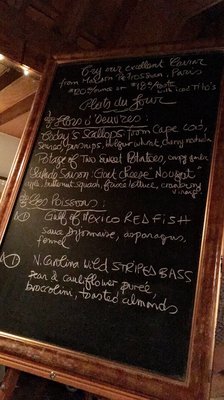 Try our excellent Caviar
from Maison Petrossian, Paris
Plats du Jour
Hors d'Oeuvres:
Today's Scallops from Cape Cod,
Potage of Two Sweet Potatoes,
Goat Cheese "Nougat"
butternut squash, frisée lettuce, cranberry
Les Poissons:
Gulf of Mexico RED FISH
sauce bijonnaise, asparagus,
fennel
N. Carolina wild STRIPED BASS
pear & cauliflower purée
broccolini, toasted almonds